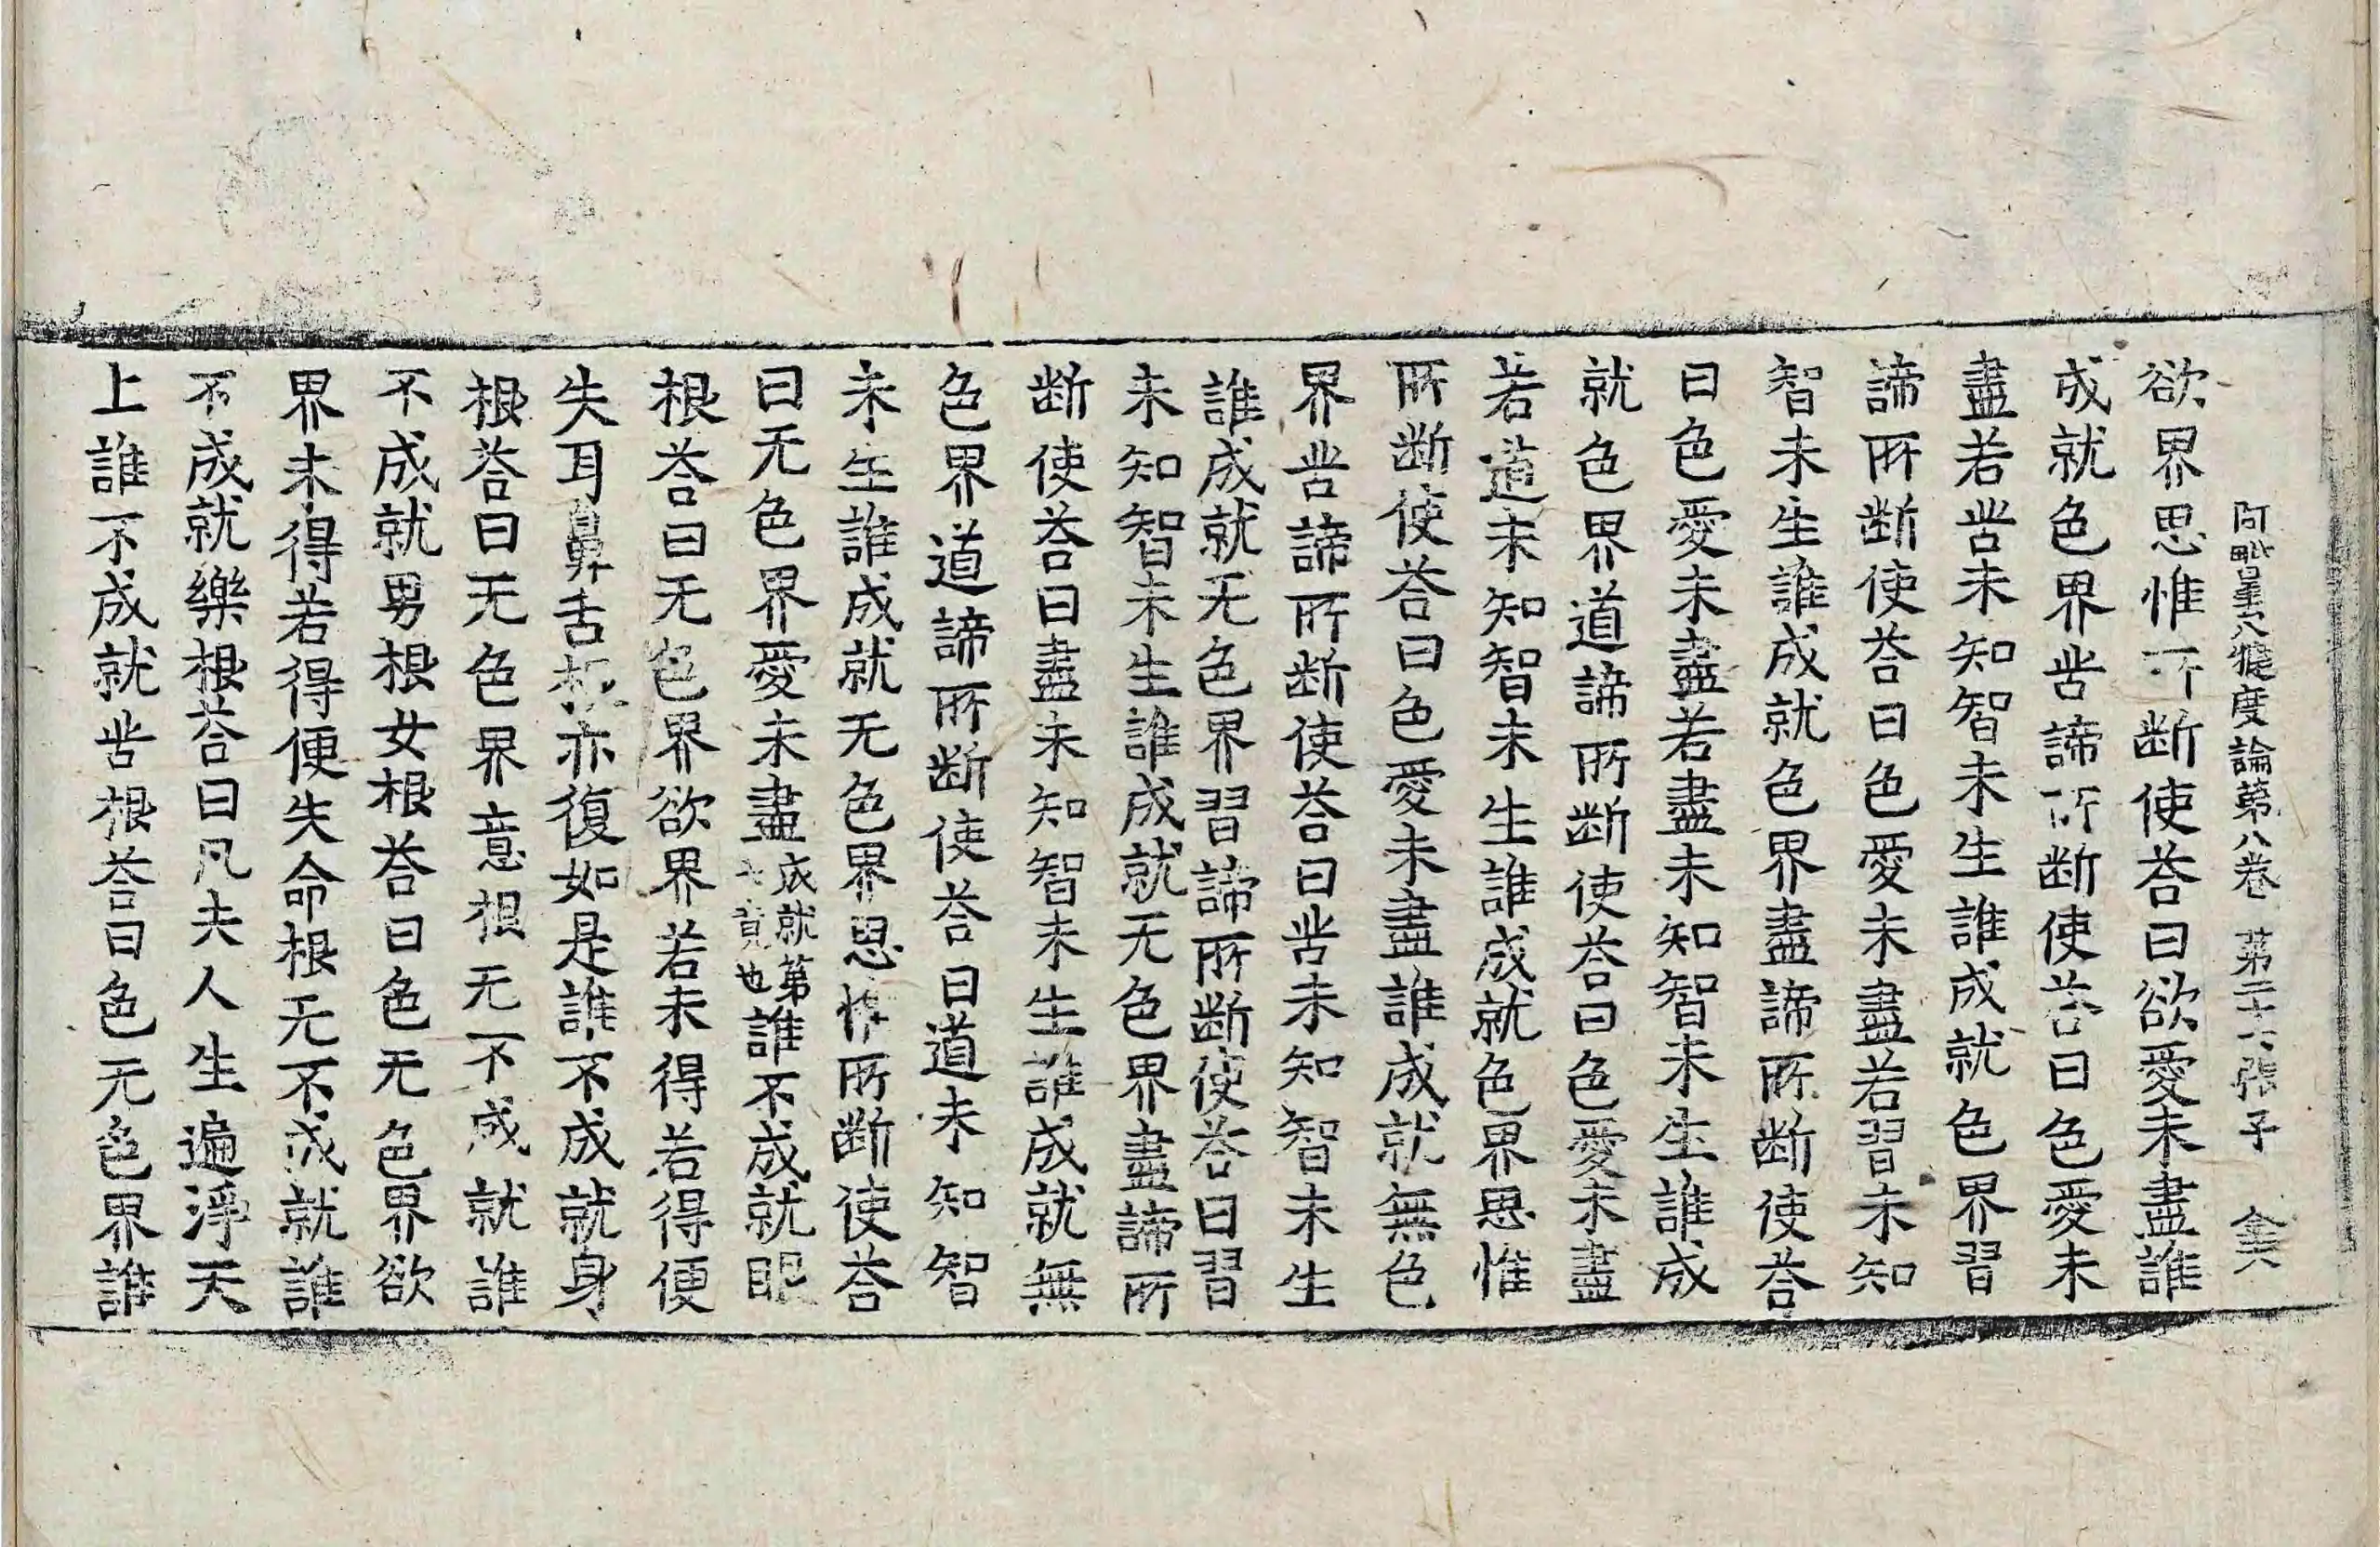 阿毗曇八犍度論第八卷 第二十六張子
欲界思惟所断使荅曰欲愛未盡誰
成就色界苦諦所断使荅曰色愛未
盡若苦未知智未生誰成就色界習
諦所断使荅曰色愛未盡若習未知
智未生誰成就色界盡諦所断使荅
曰色愛未盡若盡未知智未生誰成
就色界道諦所断使荅曰色愛未盡
若道未知智未生誰成就色界思惟
所断使荅曰色愛未盡誰成就無色
界苦諦所断使荅曰苦未知智未生
誰成就无色界習諦所断使荅曰習
未知智未生誰成就无色界盡諦所
断使荅曰盡未知智未生誰成就無
色界道諦所断使荅曰道未知智
未生誰成就无色界思惟所断使荅
曰无色界愛未盡成就第七竟也誰不成就眼
根荅曰无色界欲界若未得若得便
失耳鼻舌根亦復如是誰不成就身
根荅曰无色界意根无不成就誰
不成就男根女根荅曰色无色界欲
界未得若得便失命根无不成就誰
不成就樂根荅曰凡夫人生遍淨天
上誰不成就苦根荅曰色无色界誰